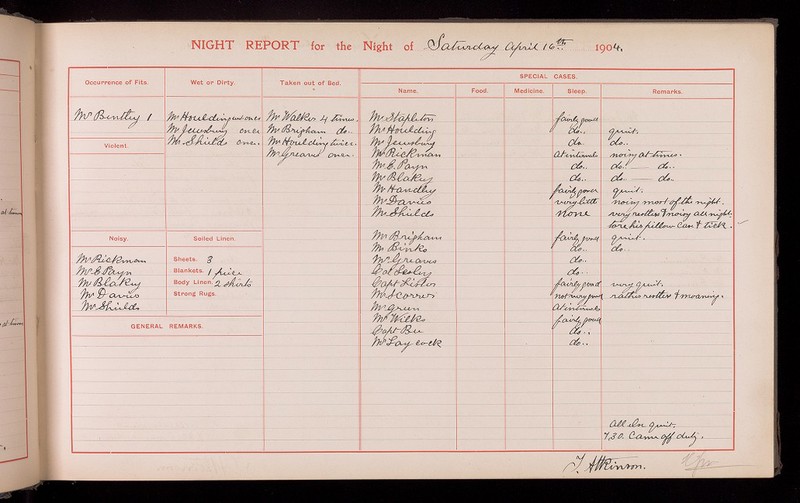 NIGHT REPORT for the Night of Saturday April 16th 1904.
Occurrence of Fits.
Wet or Dirty.
Taken out of Bed.
SPECIAL CASES.
Name.
Food.
Medicine.
Sleep.
Remarks.
Mr Bentley 1
Mr Houlding wet once
Mr Jewsbury once
Mr Shields once.
Mr Walker 4 times.
Mr Brigham do..
Mr Houlding twice.
Mr Greaves once.
Violent.
Mr Stapleton fairly good
Mr Houlding do.. quiet.
Mr Jewsbury do. do..
Mr Rickman at intervals noisy at times.
Mr E. Payn do.. do. — do..
Mr Blakey do.. do — do.
Mr Handley fairly good quiet.
Mr Davies very little noisy most of the night.
Mr Shields none very restless & noisy all night.
tore his pillow case & tick.
Noisy.
Soiled Linen.
Mr Rickman
Mr E Payn
Mr Blakey
Mr Davies
Mr Shields
Sheets. 3
Blankets. 1 piece
Body Linen. 2 shirts
Strong Rugs.
GENERAL REMARKS.
Mr Brigham fairly good quiet.
Mr Binks do.. do..
Mr Greaves do..
Col Lesley do..
Capt Lister fairly good very quiet.
Mr Scorrer not very good rather restless & moaning.
Mr Green at intervals
Mr Wilks fairly good
Capt Bu do..
Mr Laycock do..
all else quiet.
7.30. Came off duty.
J. Atkinson.